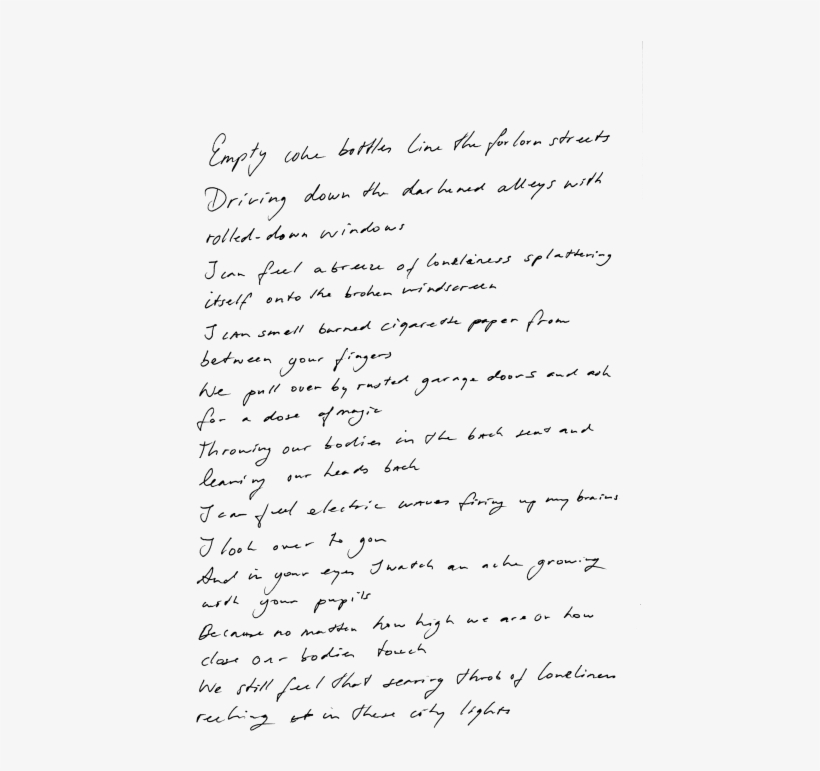 Empty coke bottles line the forlorn streets
Driving down the darkened alleys with
rolled-down windows
I can feel a breeze of loneliness splattering
itself onto the broken windscreen
I can smell burned cigarette paper from
between your fingers
We pull over by rusted garage doors and ask
for a dose of magic
Throwing our bodies in the back seat and
leaning our heads back
I can feel electric waves firing up my brains
I look over to you
And in your eyes I watch an ache growing
with your pupils
Because no matter how high we are or how
close our bodies touch
We still feel that searing throb of loneliness
reeking in these city lights